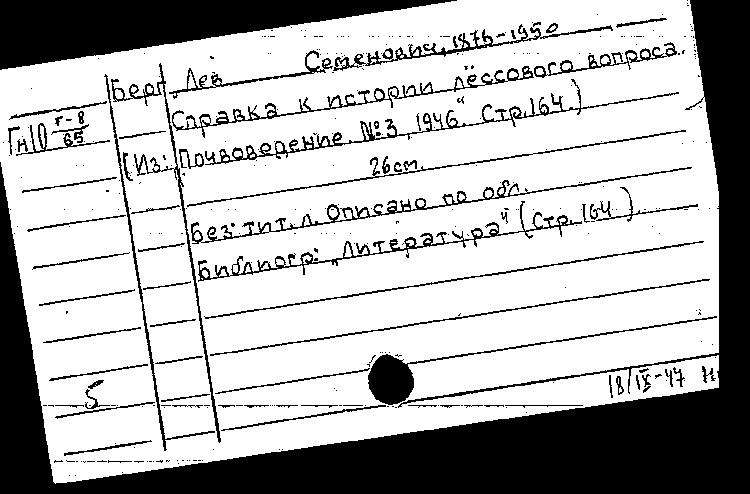 Берг, Лев Семенович, 1876-1950
Гн10 Г-8/65
Справка к истории лёссового вопроса.
[Из: „Почвоведение. №3, 1946“. Стр.164.)
26см.
Без тит. л. Описано по обл.
Библиогр: „Литература“ (Стр. 164).
5
18/IX-47